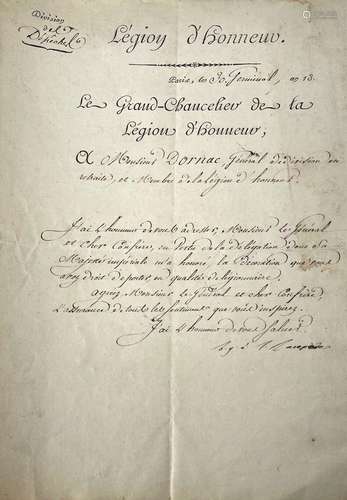 Division
de la
Légion d'Honneur.
Paris, le 30 Germinal, an 13.
Le Grand-Chancelier de la
Légion d'Honneur,
A Monsieur Dornac, Général de division en
retraite, et Membre de la légion d'honneur.
J'ai l'honneur de vous adresser, Monsieur le Général
et cher Confrère, en vertu de la délégation dont Sa
Majesté impériale m'a honoré, la Décoration que vous
avez droit de porter, en qualité de légionnaire.
agréez Monsieur le Général et cher Confrère
L'assurance de tous les sentimens que vous inspirez.
J'ai l'honneur de vous saluer.